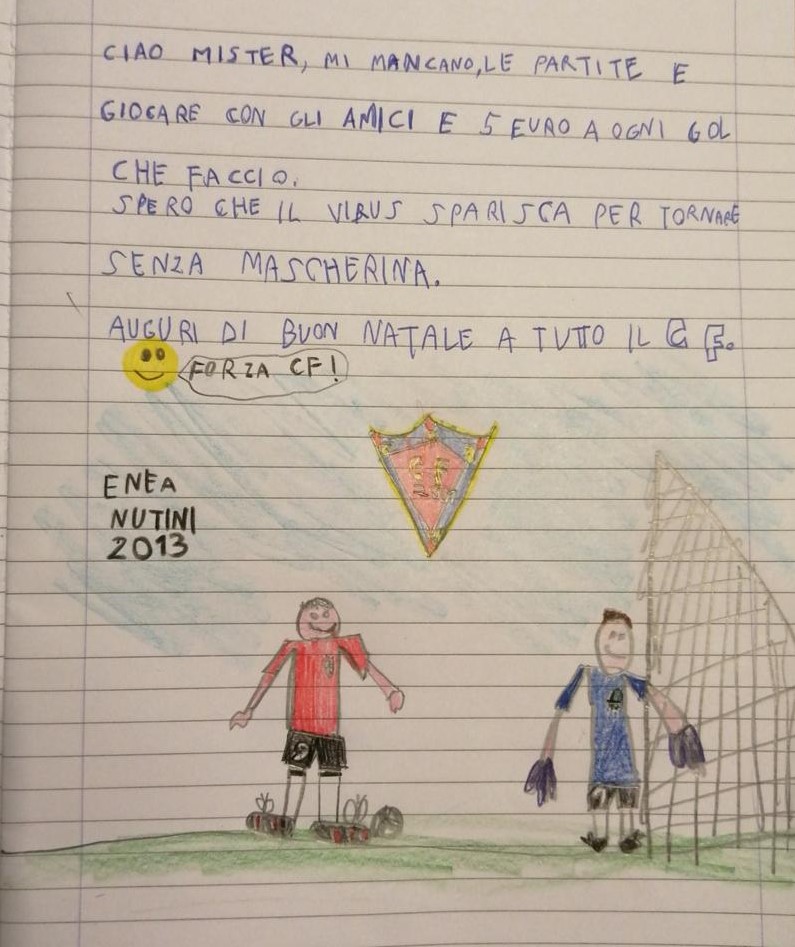 CIAO MISTER, MI MANCANO, LE PARTITE E
GIOCARE CON GLI AMICI E 5 EURO A OGNI GOL
CHE FACCIO.
SPERO CHE IL VIRUS SPARISCA PER TORNARE
SENZA MASCHERINA.
AUGURI DI BUON NATALE A TUTTO IL CF.
FORZA CF!
CF
ENEA
NUTINI
2013
9